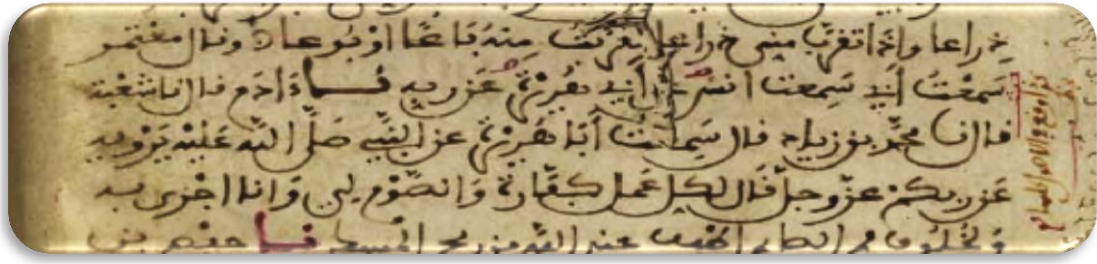 ذراعا واذا تقرب مني ذراعا تقربت منه باعا او بوعا وقال معتمر
سمعت أبي سمعت انسا عن أبي هريرة عن ربه نا ءادم قال نا شعبة
قال نا محمد بن زياد قال سمعت أبا هريرة عن النبي صلى الله عليه يرويه
عن ربكم عز وجل قال لكل عمل كفارة والصوم لي وانا اجزي به
ولخلوف فم الصائم اطيب عند الله من ريح المسك نا حفص بن